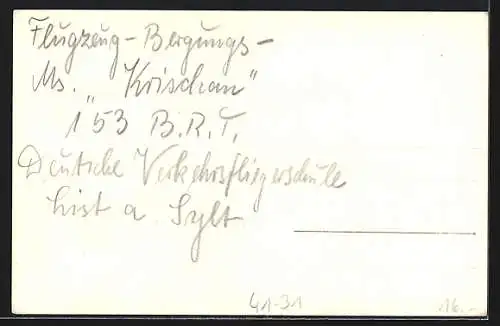 Flugzeug-Bergungs-
Ms. "Krischan"
153 B.R.T.
Deutsche Verkehrsfliegerschule
List a Sylt
41-31
16.-